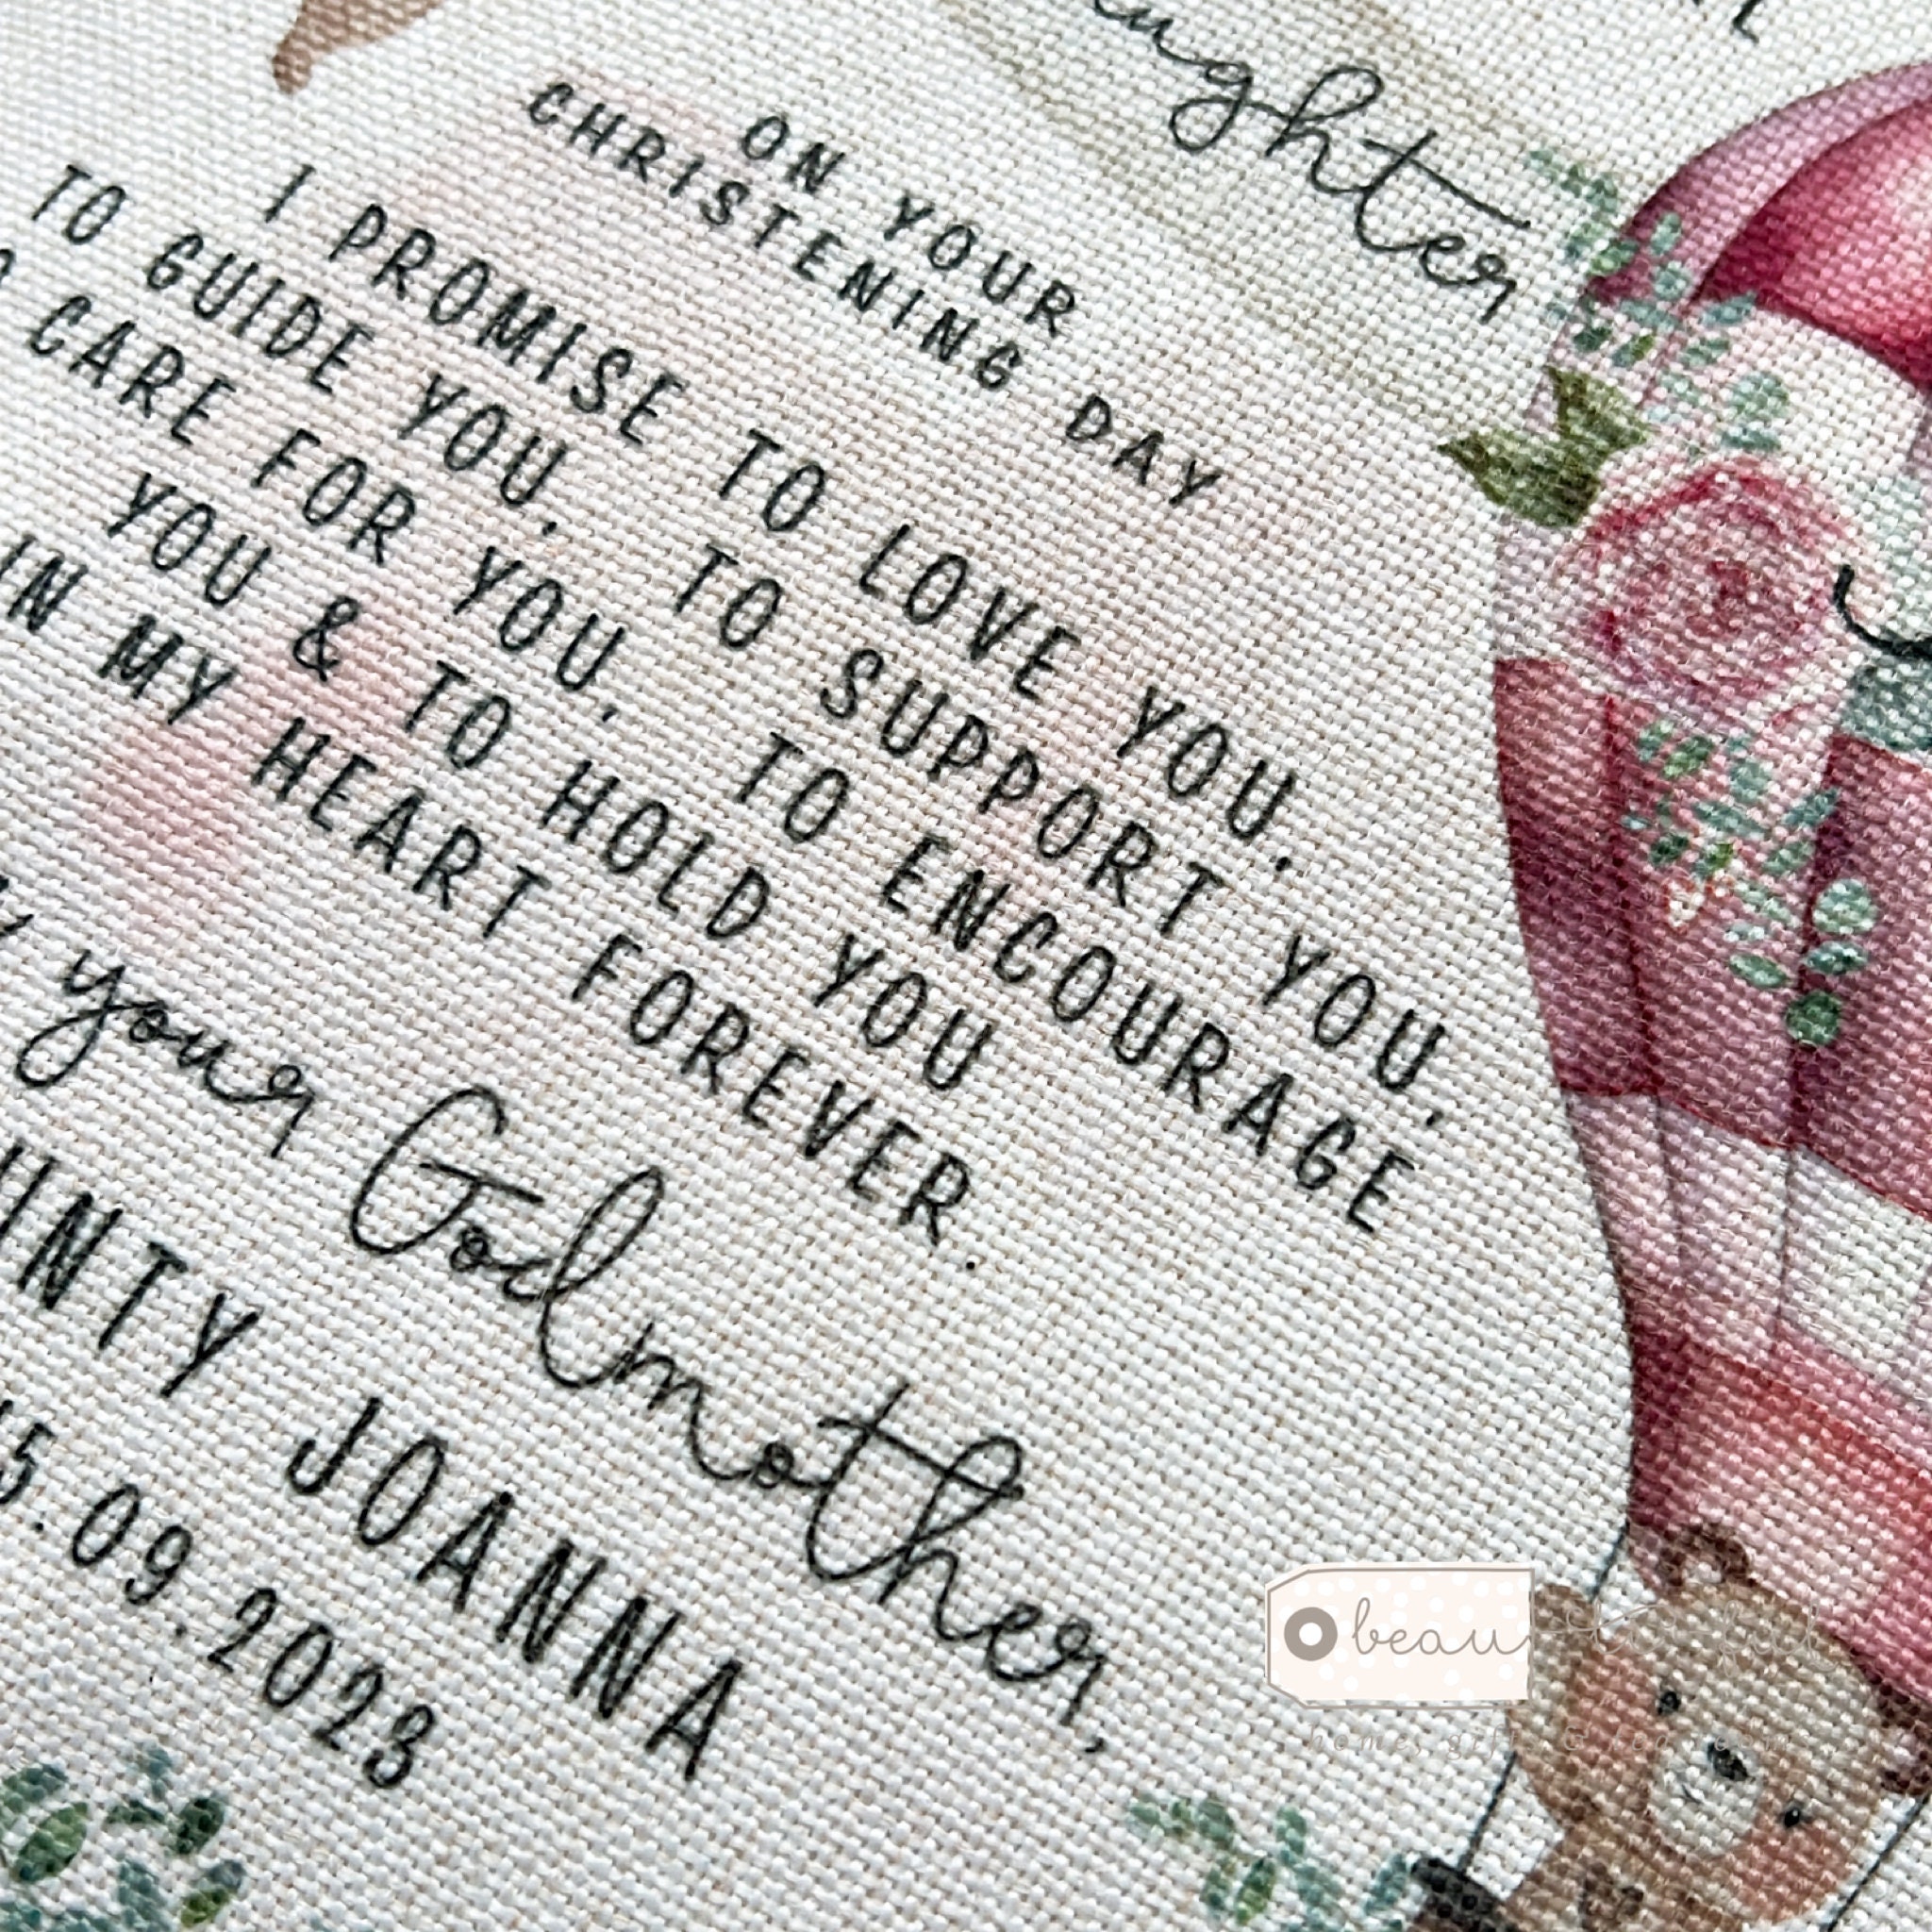 ON YOUR
CHRISTENING DAY
I PROMISE TO LOVE YOU.
TO GUIDE YOU. TO SUPPORT YOU.
CARE FOR YOU. TO ENCOURAGE
YOU & TO HOLD YOU
IN MY HEART FOREVER.
your Godmother,
JOANNA
.09.2023